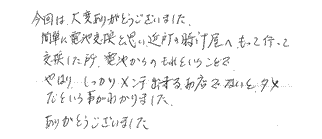 今回は、大変ありがとうございました。
簡単に電池交換と思い近所の時計屋へもって行って
交換した所、電池からのもれということで
やはり、しっかりメンテ出来るお店でないとダメ
だという事がわかりました。
ありがとうございました